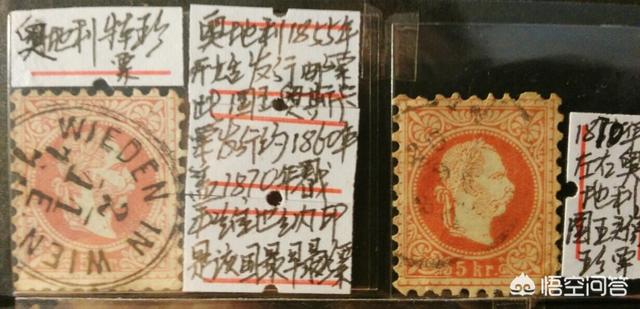 奥地利特珍
票
奥地利1855年
开始发行邮票
此国王奥斯卡
票发行约1860年
盖1870年戳
是该国最早最票
WIEDEN IN WIEN
5 kr.
1870年
左右奥
地利
国王
珍票
悟空问答